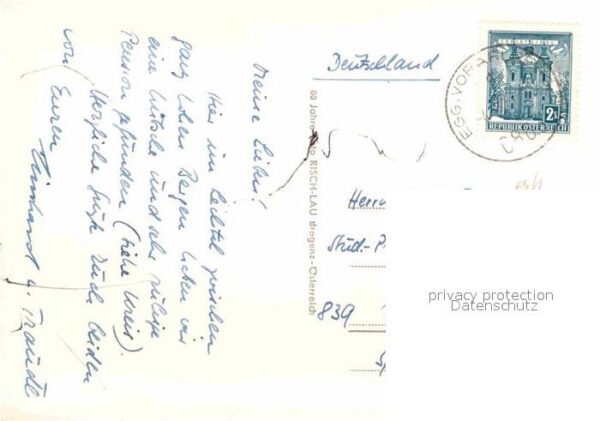 Meine Lieben!
Hier im Lechtal zwischen
ganz hohen Bergen haben wir
eine hübsche und sehr ruhige
Pension gefunden (siehe Kreis).
Herzliche Grüße Euch beiden
von Euren
Reinhard u. Traudl
60 Jahre Foto RISCH-LAU Bregenz-Österreich
Deutschland
Herrn
Stud.-P
839
EGG, VORARL
CHRISTKINDL
2S
REPUBLIK ÖSTERREICH
privacy protection
Datenschutz